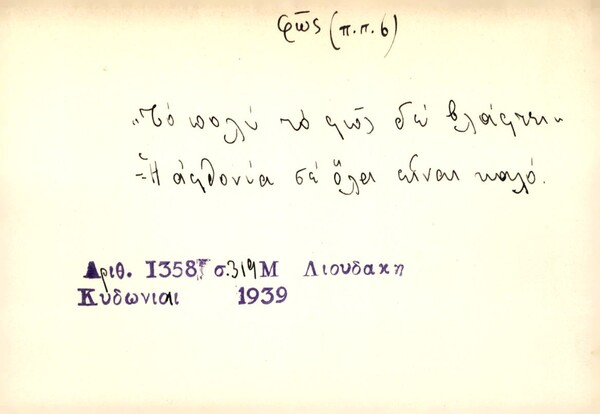 φῶς (π.π.6)
„Τό πολύ τό φῶς δέ βλάφτει„
=Ἡ ἀφθονία σέ ὅλα εἶναι καλό.
Αριθ. 1358Γ σ.319 Μ Λιουδακη
Κυδωνιαι 1939